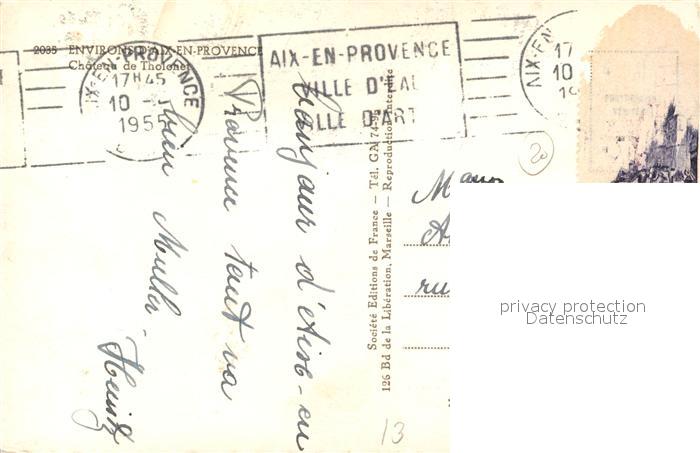 2035 ENVIRONS D'AIX-EN-PROVENCE
Château de Tholonet
AIX-EN-PROVENCE
17H45
10
195
AIX-EN-PROVENCE
VILLE D'EAU
VILLE D'ART
AIX-EN
17
10
20
bonjour d'Aix-en
Provence tout va
bien
Heinz
Société Editions de France — Tél. GA 74-94
126 Bd de la Libération, Marseille — Reproduction interdite
ru
13
privacy protection
Datenschutz